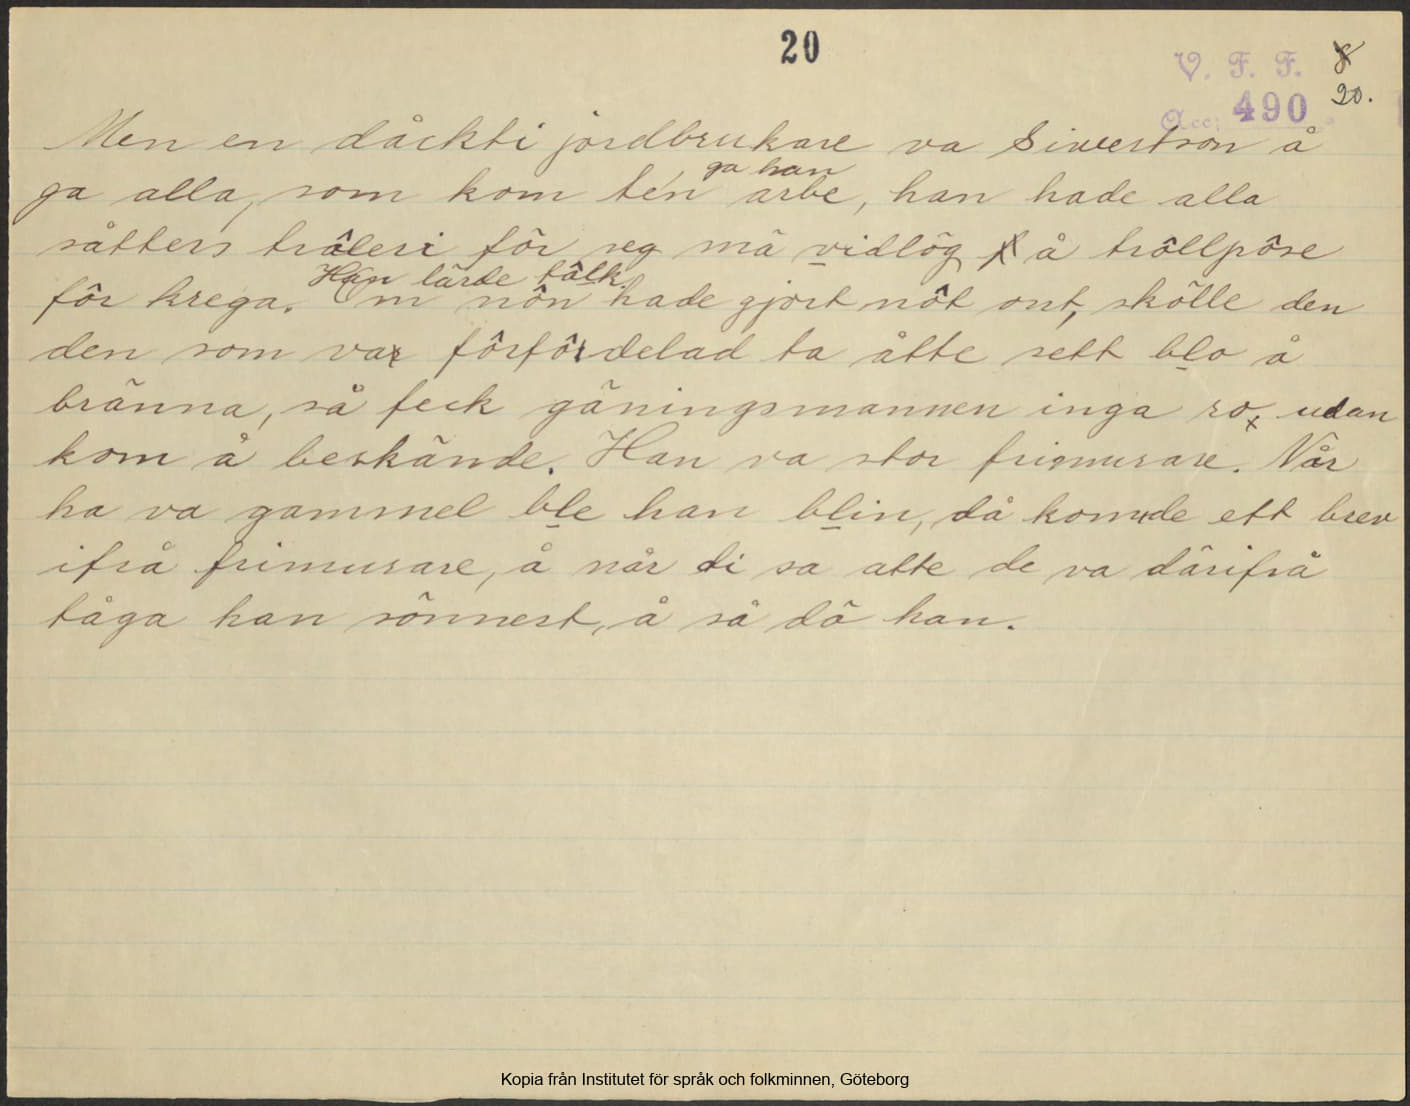 20
V. F. F. 8
Acc: 490 20.
Men en dåckti jordbrukare va Siwertson å
ga han
ga alla, som kom te'n arbe, han hade alla
såtters trôleri fôr seg mä vidlôg å trôllpôse
Han lärde fôlk.
fôr krega. Om nôn hade gjort nôt ont, skôlle den
den som var fôrfôrdelad ta åtte sett blo å
bränna, så feck gäningsmannen inga ro, udan
kom å beskände. Han va stor frimurare. Når
ha va gammel ble han blin, då komde ett brev
ifrå frimurare, å når di sa atte de va därifrå
tåga han sönnest, å så dö han.
Kopia från Institutet för språk och folkminnen, Göteborg